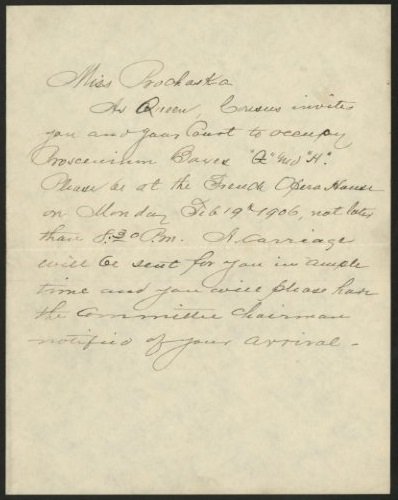 Miss Prochaska
As Queen, Cresus invites
you and your Court to occupy
Proscenium Boxes "G" and "H".
Please be at the French Opera House
on Monday Feb 19th 1906, not later
than 8.30 P.m. A carriage
will be sent for you in ample
time and you will please have
the Committee Chairman
notified of your arrival -